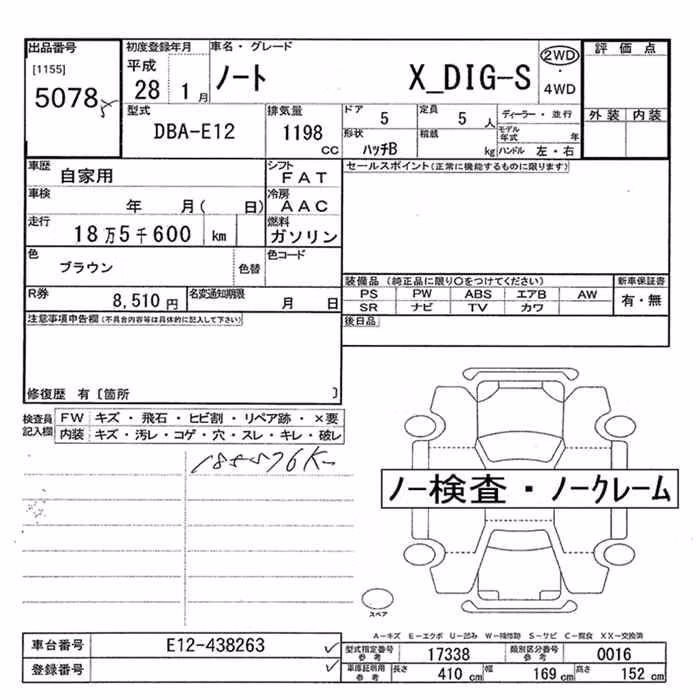 出品番号
[1155]
5078
初度登録年月
平成
28 1月
車名・グレード
ノート X_DIG-S
2WD
・
4WD
評価点
外装 内装
型式
DBA-E12
排気量
1198
CC
ドア 5
定員 5 人
ディーラー・並行
形状
ハッチB
積載
kg
モデル年式 年
ハンドル 左・右
車歴
自家用
シフト
FAT
セールスポイント(正常に機能するものに限ります)
車検
年 月( 日)
冷房
AAC
走行
18万5千600 km
燃料
ガソリン
色
ブラウン
色替
色コード
R券
8,510 円
名変通知期限
月 日
装備品 (純正品に限り○をつけてください)
PS PW ABS エアB AW
SR ナビ TV カワ
新車保証書
有・無
注意事項申告欄(不具合内容等は具体的に記入して下さい)
後日品
修復歴 有〔箇所 〕
検査員記入欄
FW キズ・飛石・ヒビ割・リペア跡・×要
内装 キズ・汚レ・コゲ・穴・スレ・キレ・破レ
ノー検査・ノークレーム
スペア
A-キズ E-エクボ U-凹み W-補修跡 S-サビ C-腐食 XX-交換済
車台番号 E12-438263
登録番号
型式指定番号 参考 17338
類別区分番号 参考 0016
車庫証明用 参考
長さ 410 cm
幅 169 cm
高さ 152 cm